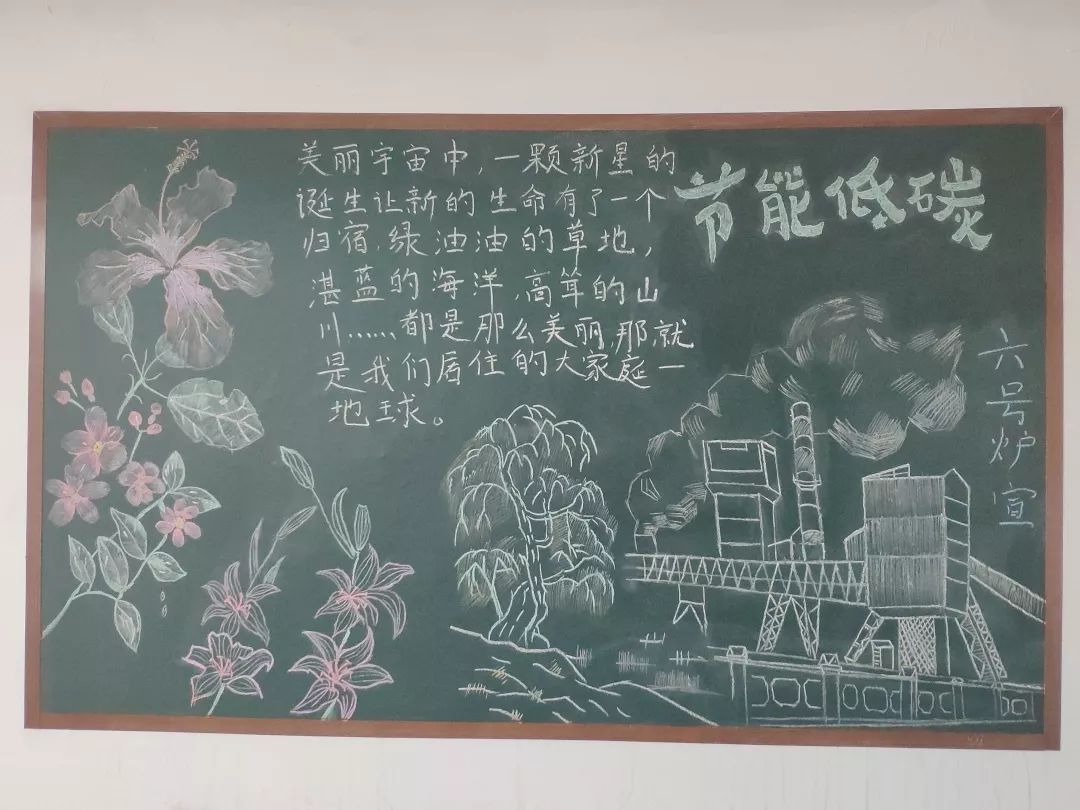 节能低碳
美丽宇宙中，一颗新星的
诞生让新的生命有了一个
归宿，绿油油的草地，
湛蓝的海洋，高耸的山
川……都是那么美丽，那就
是我们居住的大家庭一
地球。
六号炉宣